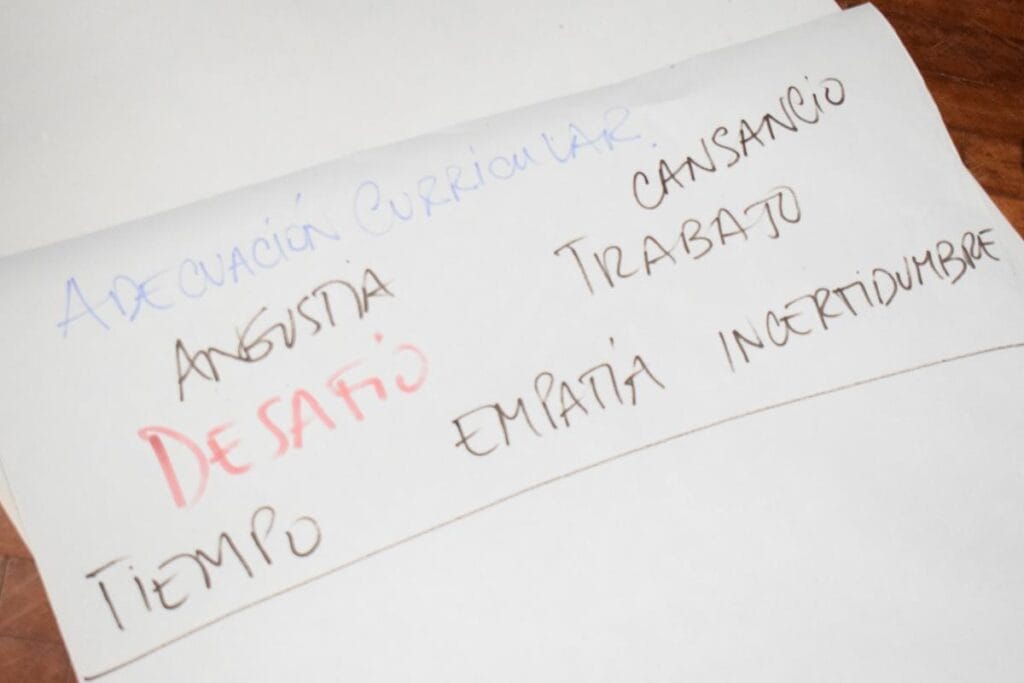 ADECUACIÓN CURRICULAR.
CANSANCIO
ANGUSTIA
TRABAJO
DESAFÍO
EMPATÍA
INCERTIDUMBRE
TIEMPO